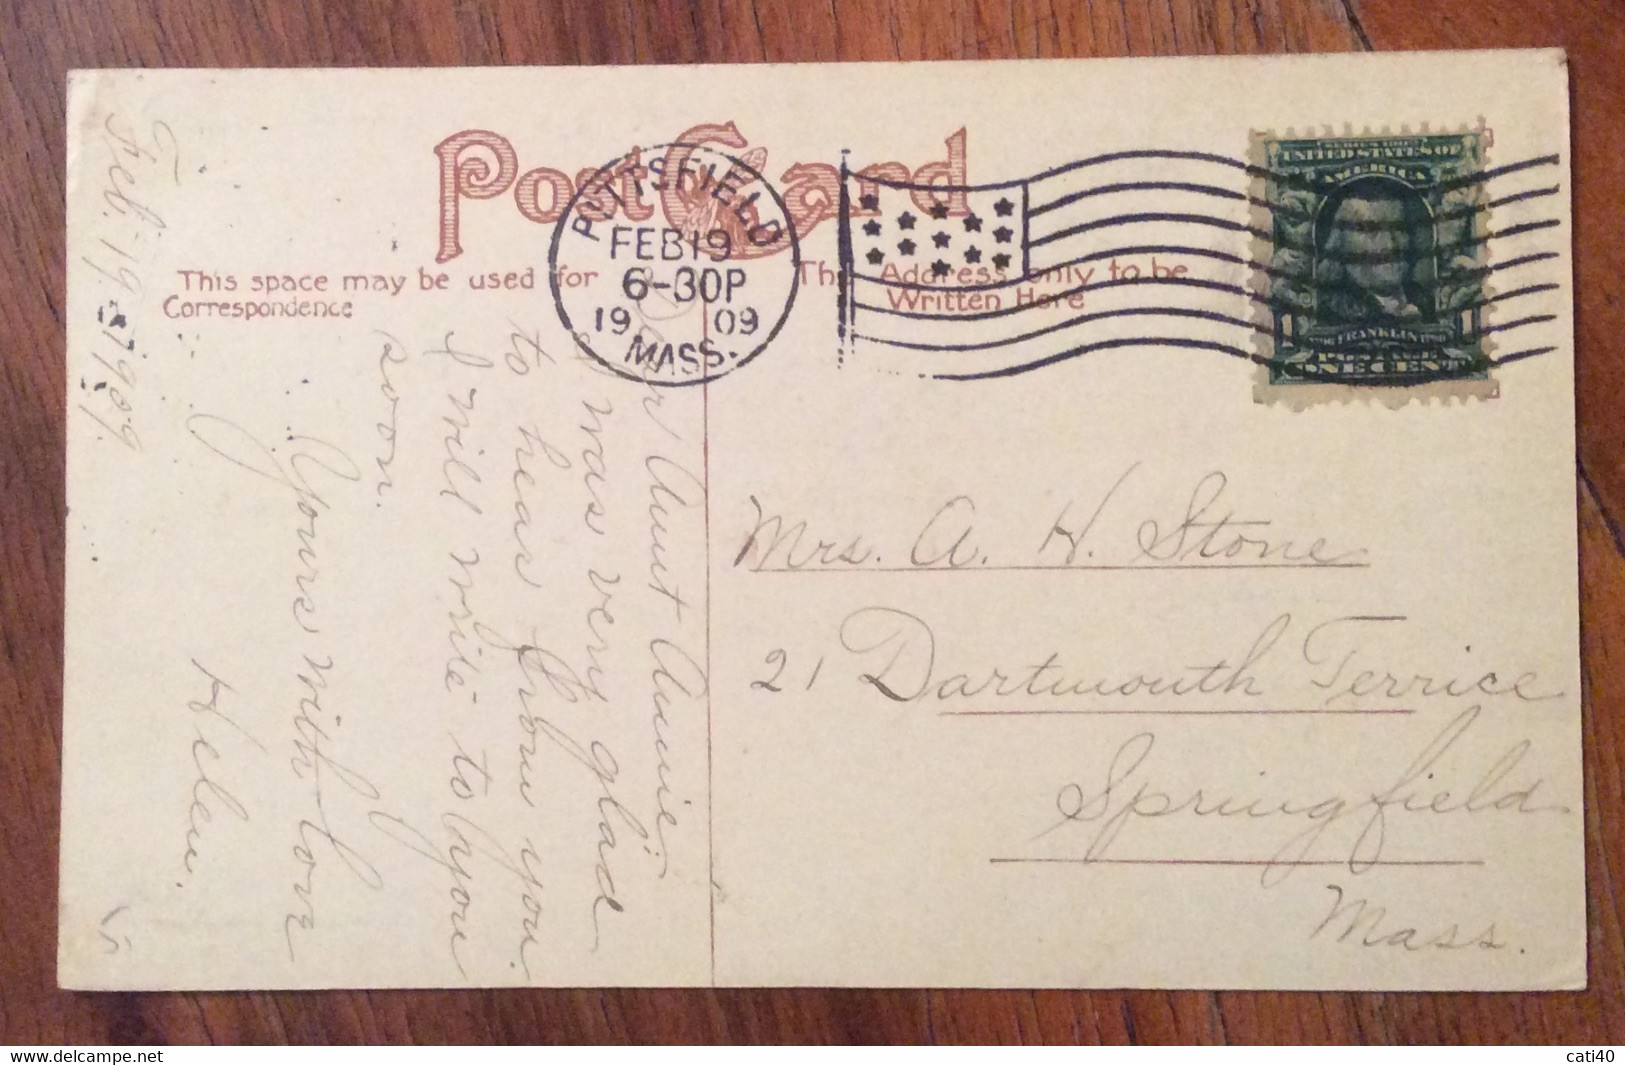 Post Card
This space may be used for
Correspondence
The Address only to be
Written Here
PITTSFIELD
FEB 19
6-30P
19 09
MASS.
SERIES 1902
UNITED STATES OF
AMERICA
1 FRANKLIN 1
POSTAGE
ONE CENT
Feb. 19 - 1909.
Dear Aunt Annie:-
I was very glad
to hear from you.
I will write to you
soon.
Yours with love
Helen.
Mrs. A. H. Stone
21 Dartmouth Terrice
Springfield
Mass.
cati40